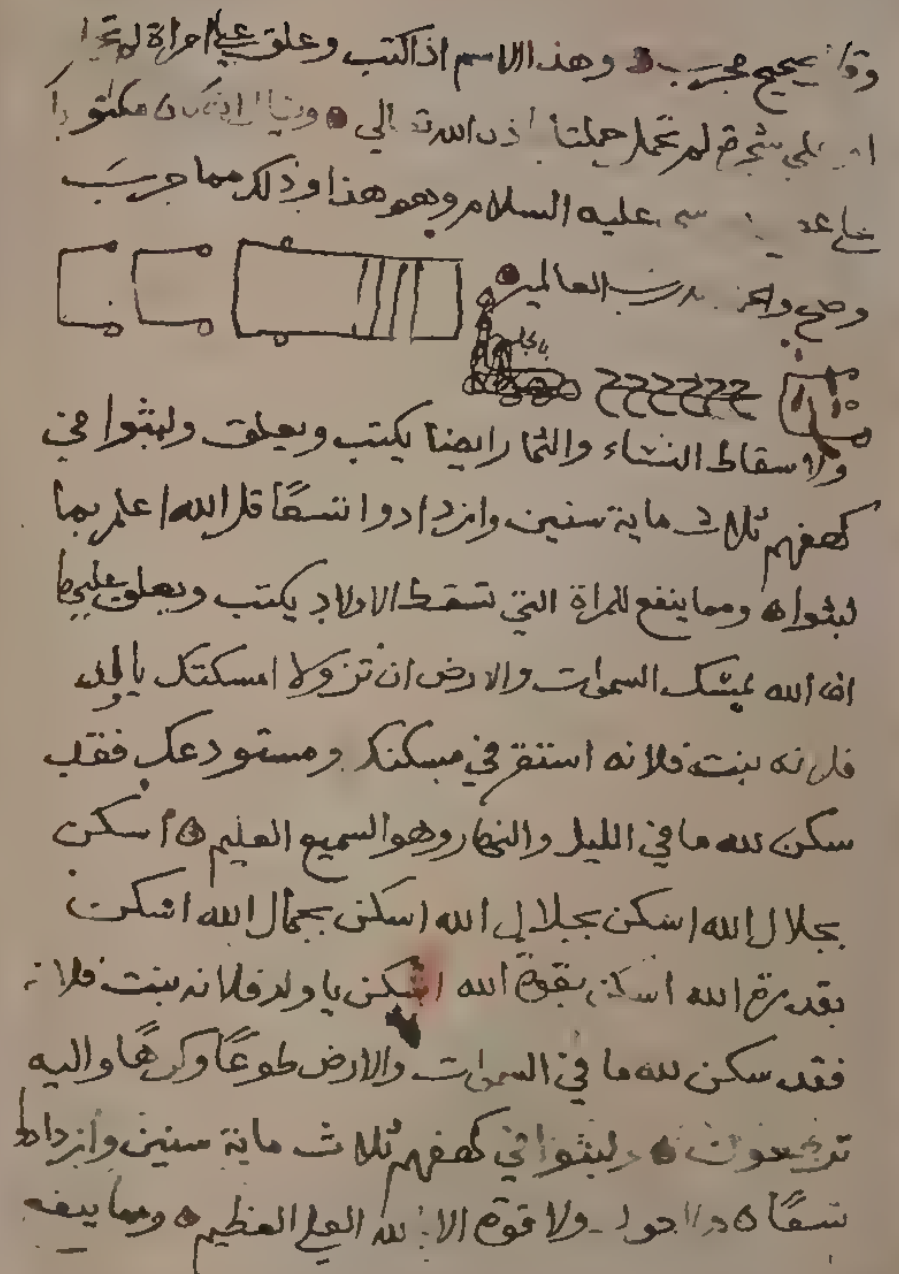 صحيح مجرب وهذا الاسم اذا كتب وعلق على امراة لم
شجرة لم تحمل حملت الله تعالى مكتوبا
عليه السلام وهو هذا وذلك مما جرب
وصح رب العالمين
ولاسقاط النساء والثمار ايضا يكتب ويعلق ولبثوا في
كهفهم ثلاث ماية سنين وازدادوا تسعًا قل الله اعلم بما
لبثوا ومما ينفع للمراة التي تسقط الاولاد يكتب ويعلق عليها
ان الله يمسك السموات والارض ان تزولا امسكتك يا ولد
فلانه بنت فلانه استقر في مسكنك ومستودعك فقد
سكن لله ما في الليل والنهار وهو السميع العليم أسكن
بجلال الله اسكن بجلال الله اسكن بجمال الله اسكن
بقدرة الله اسكن بقوة الله اسكن يا ولد فلانه بنت فلانه
فقد سكن لله ما في السموات والارض طوعًا وكرهًا واليه
ترجعون ولبثوا في كهفهم ثلاث ماية سنين وازدادوا
تسعًا ولا حول ولا قوة الا بالله العلي العظيم ومما ينفع